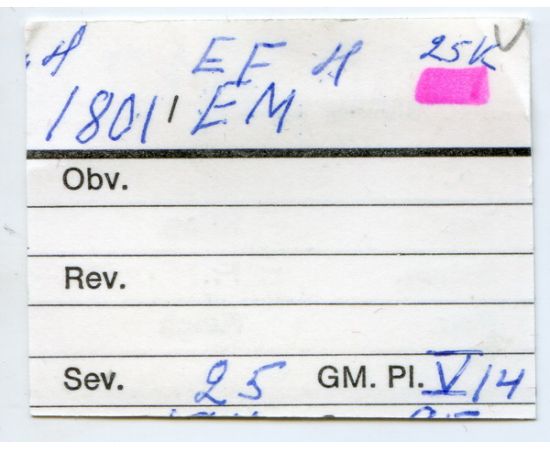 H EF H 25K
1801 EM
Obv.
Rev.
Sev. 25 GM. Pl. V/14